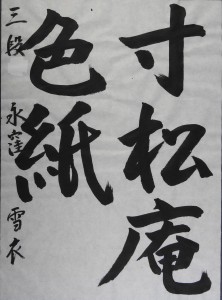 寸松庵
色紙
三段 永窪 雪衣